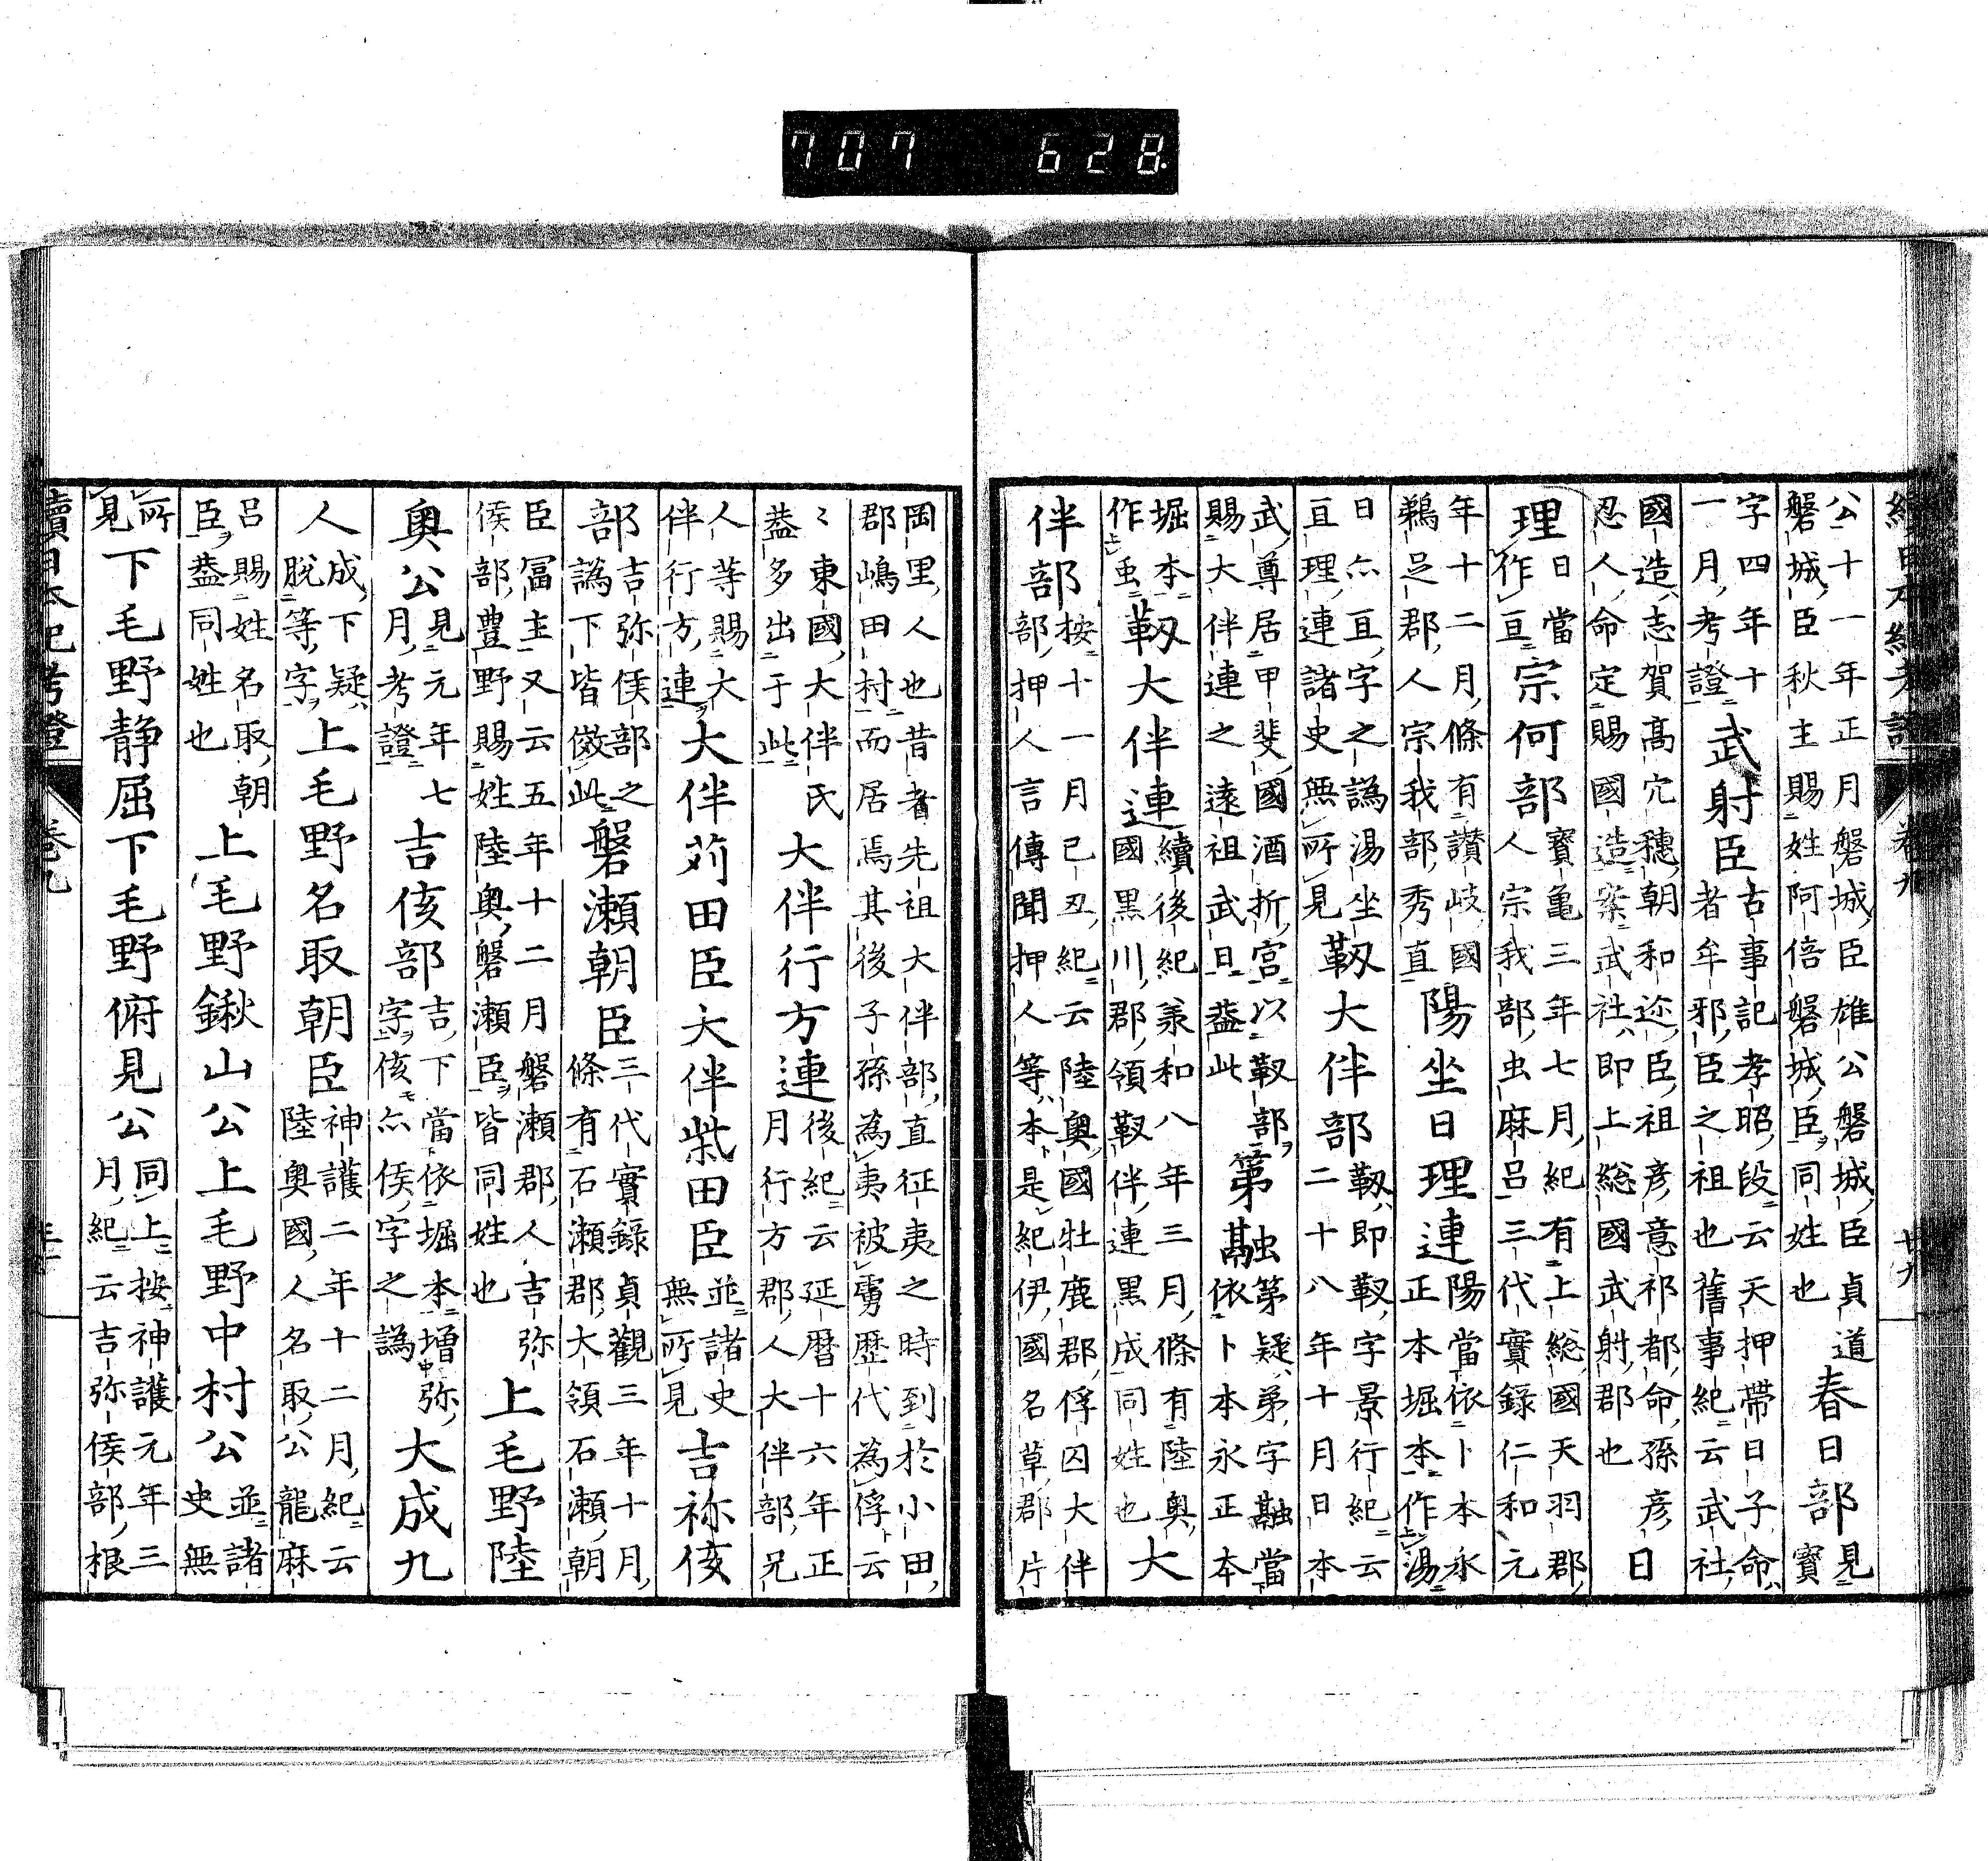 707 628
續日本紀考證 卷九 廿九
公十一年正月磐城臣雄公磐城臣貞道
磐城臣秋主賜姓阿倍磐城臣同姓也
春日部
見寶
字四年十一月考證
武射臣
古事記孝昭段云天押帶日子命
者牟邪臣之祖也舊事紀云武社
國造志賀高穴穗朝和迩臣祖彥意祁都命孫彥
忍人命定賜國造案武社即上總國武射郡也
日理
日當作亘
宗何部
寶龜三年七月紀有上總國天羽郡
人宗我部虫麻呂三代實錄仁和元
年十二月條有讃岐國
鵜足郡人宗我部秀直
陽坐日理連
陽當依卜本永
正本堀本作湯
日亦亘字之譌湯坐
亘理連諸史無所見
靱大伴部
靱即靫字景行紀云
二十八年十月日本
武尊居甲斐國酒折宮以靫部
賜大伴連之遠祖武日葢此
第融
第疑弟字融當
依卜本永正本
堀本作䖝
靱大伴連
續後紀兼和八年三月條有陸奧
國黑川郡領靫伴連黑成同姓也
大伴部
按十一月己丑紀云陸奧國牡鹿郡俘囚大伴
部押人言傳聞押人等本是紀伊國名草郡片
岡里人也昔者先祖大伴部直征夷之時到於小田
郡嶋田村而居焉其後子孫為夷被虜歷代為俘云
〻東國大伴氏
葢多出于此
大伴行方連
後紀云延曆十六年正
月行方郡人大伴部兄
人等賜大
伴行方連
大伴苅田臣大伴柴田臣
並諸史
無所見
吉祢侅部
吉弥侯部之
譌下皆倣此
磐瀬朝臣
三代實錄貞觀三年十月
條有石瀬郡大領石瀬朝
臣冨主又云五年十二月磐瀬郡人吉弥
侯部豊野賜姓陸奧磐瀬臣皆同姓也
上毛野陸奥公
見元年七
月考證
吉侅部
吉下當依堀本增弥
字侅亦侯字之譌
大成九人
成下疑
脫等字
上毛野名取朝臣
神護二年十二月紀云
陸奧國人名取公龍麻
呂賜姓名取朝
臣葢同姓也
上毛野鍬山公上毛野中村公
並諸
史無
所見
下毛野静屈下毛野俯見公
同上按神護元年三
月紀云吉弥侯部根
續日本紀考證 卷九